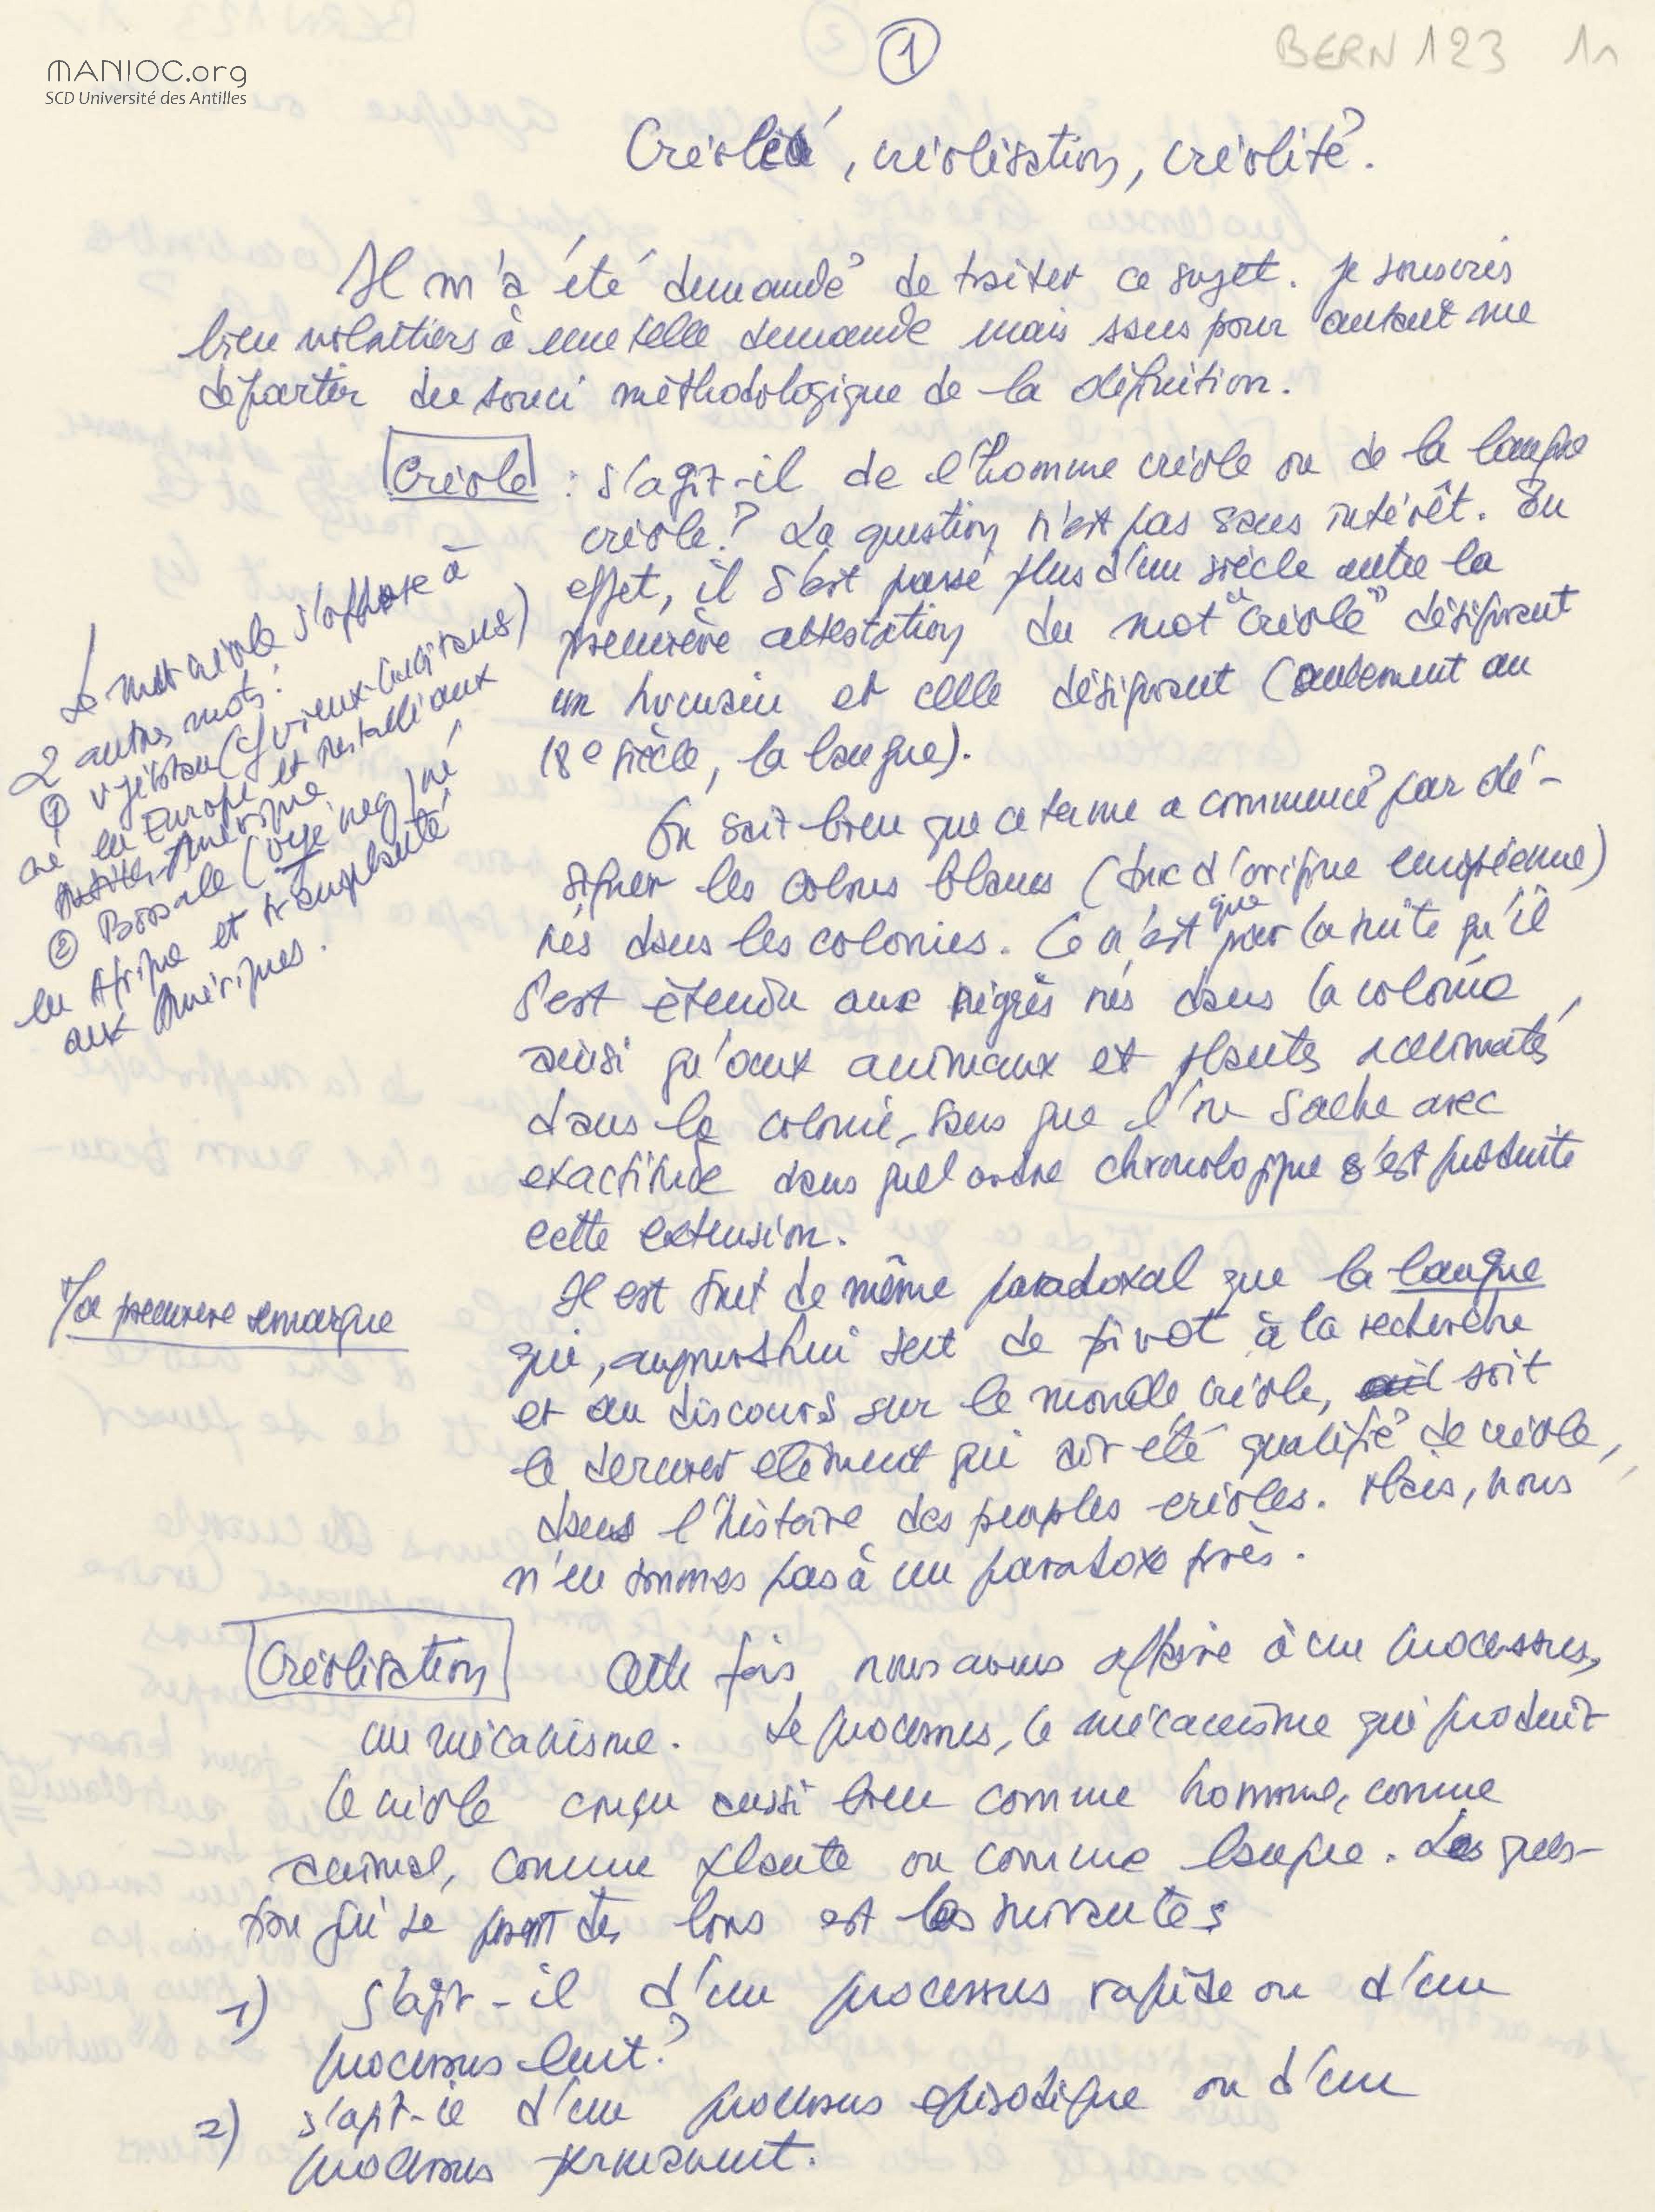 1
BERN 123 1r
MANIOC.org
SCD Université des Antilles
Créole, créolisation, créolité.
Il m'a été demandé de traiter ce sujet. Je souscris
bien volontiers à une telle demande mais sans pour autant me
départir du souci méthodologique de la définition.
Créole : s'agit-il de l'homme créole ou de la langue
créole ? La question n'est pas sans intérêt. En
effet, il s'est passé plus d'un siècle entre la
première attestation du mot "créole" désignant
un humain et celle désignant (seulement au
18e siècle, la langue).
On sait bien que ce terme a commencé par dé-
signer les colons blancs (donc d'origine européenne)
nés dans les colonies. Ce n'est que par la suite qu'il
s'est étendu aux nègres nés dans la colonie,
ainsi qu'aux animaux et plantes acclimatés
dans la colonie, sans que l'on sache avec
exactitude dans quel ordre chronologique s'est produite
cette extension.
Le mot créole s'oppose à
2 autres mots :
① vyé blan (cf vieux-habitans)
né en Europe et installé aux
Antilles-Amérique
② Bossale (vyé nèg) né
en Afrique et transplanté
aux Amériques.
Ma première remarque
Il est tout de même paradoxal que la langue
qui, aujourd'hui sert de pivot à la recherche
et au discours sur le monde créole, soit
le dernier élément qui ait été qualifié de créole,
dans l'histoire des peuples créoles. Mais, nous
n'en sommes pas à un paradoxe près.
Créolisation Cette fois nous avons affaire à un processus,
un mécanisme. Le processus, le mécanisme qui produit
le créole conçu aussi bien comme homme, comme
animal, comme plante ou comme langue. Les ques-
tion qui se posent dès lors est les suivantes
1) S'agit-il d'un processus rapide ou d'un
processus lent ?
2) s'agit-il d'un processus épisodique ou d'un
processus permanent.